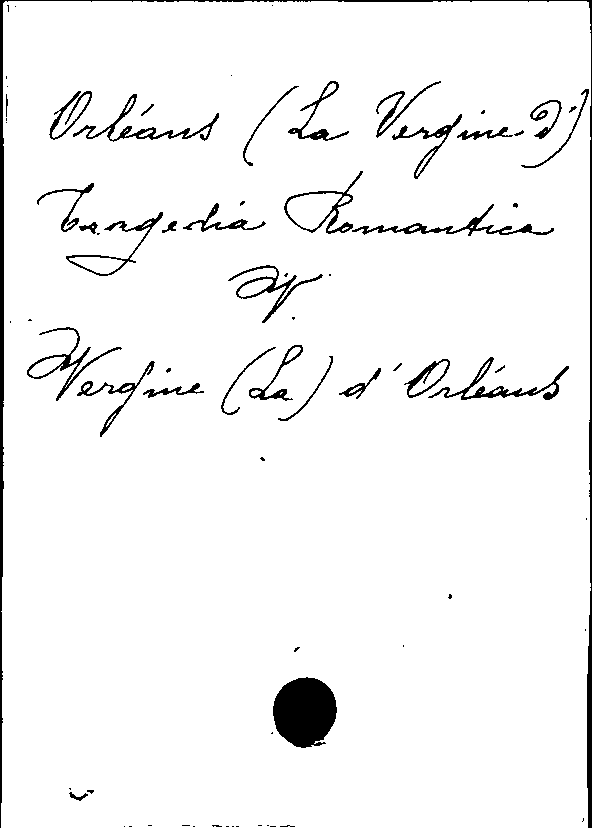 Orléans (La Vergine d')
Tragedia Romantica
V.
Vergine (La) d'Orléans